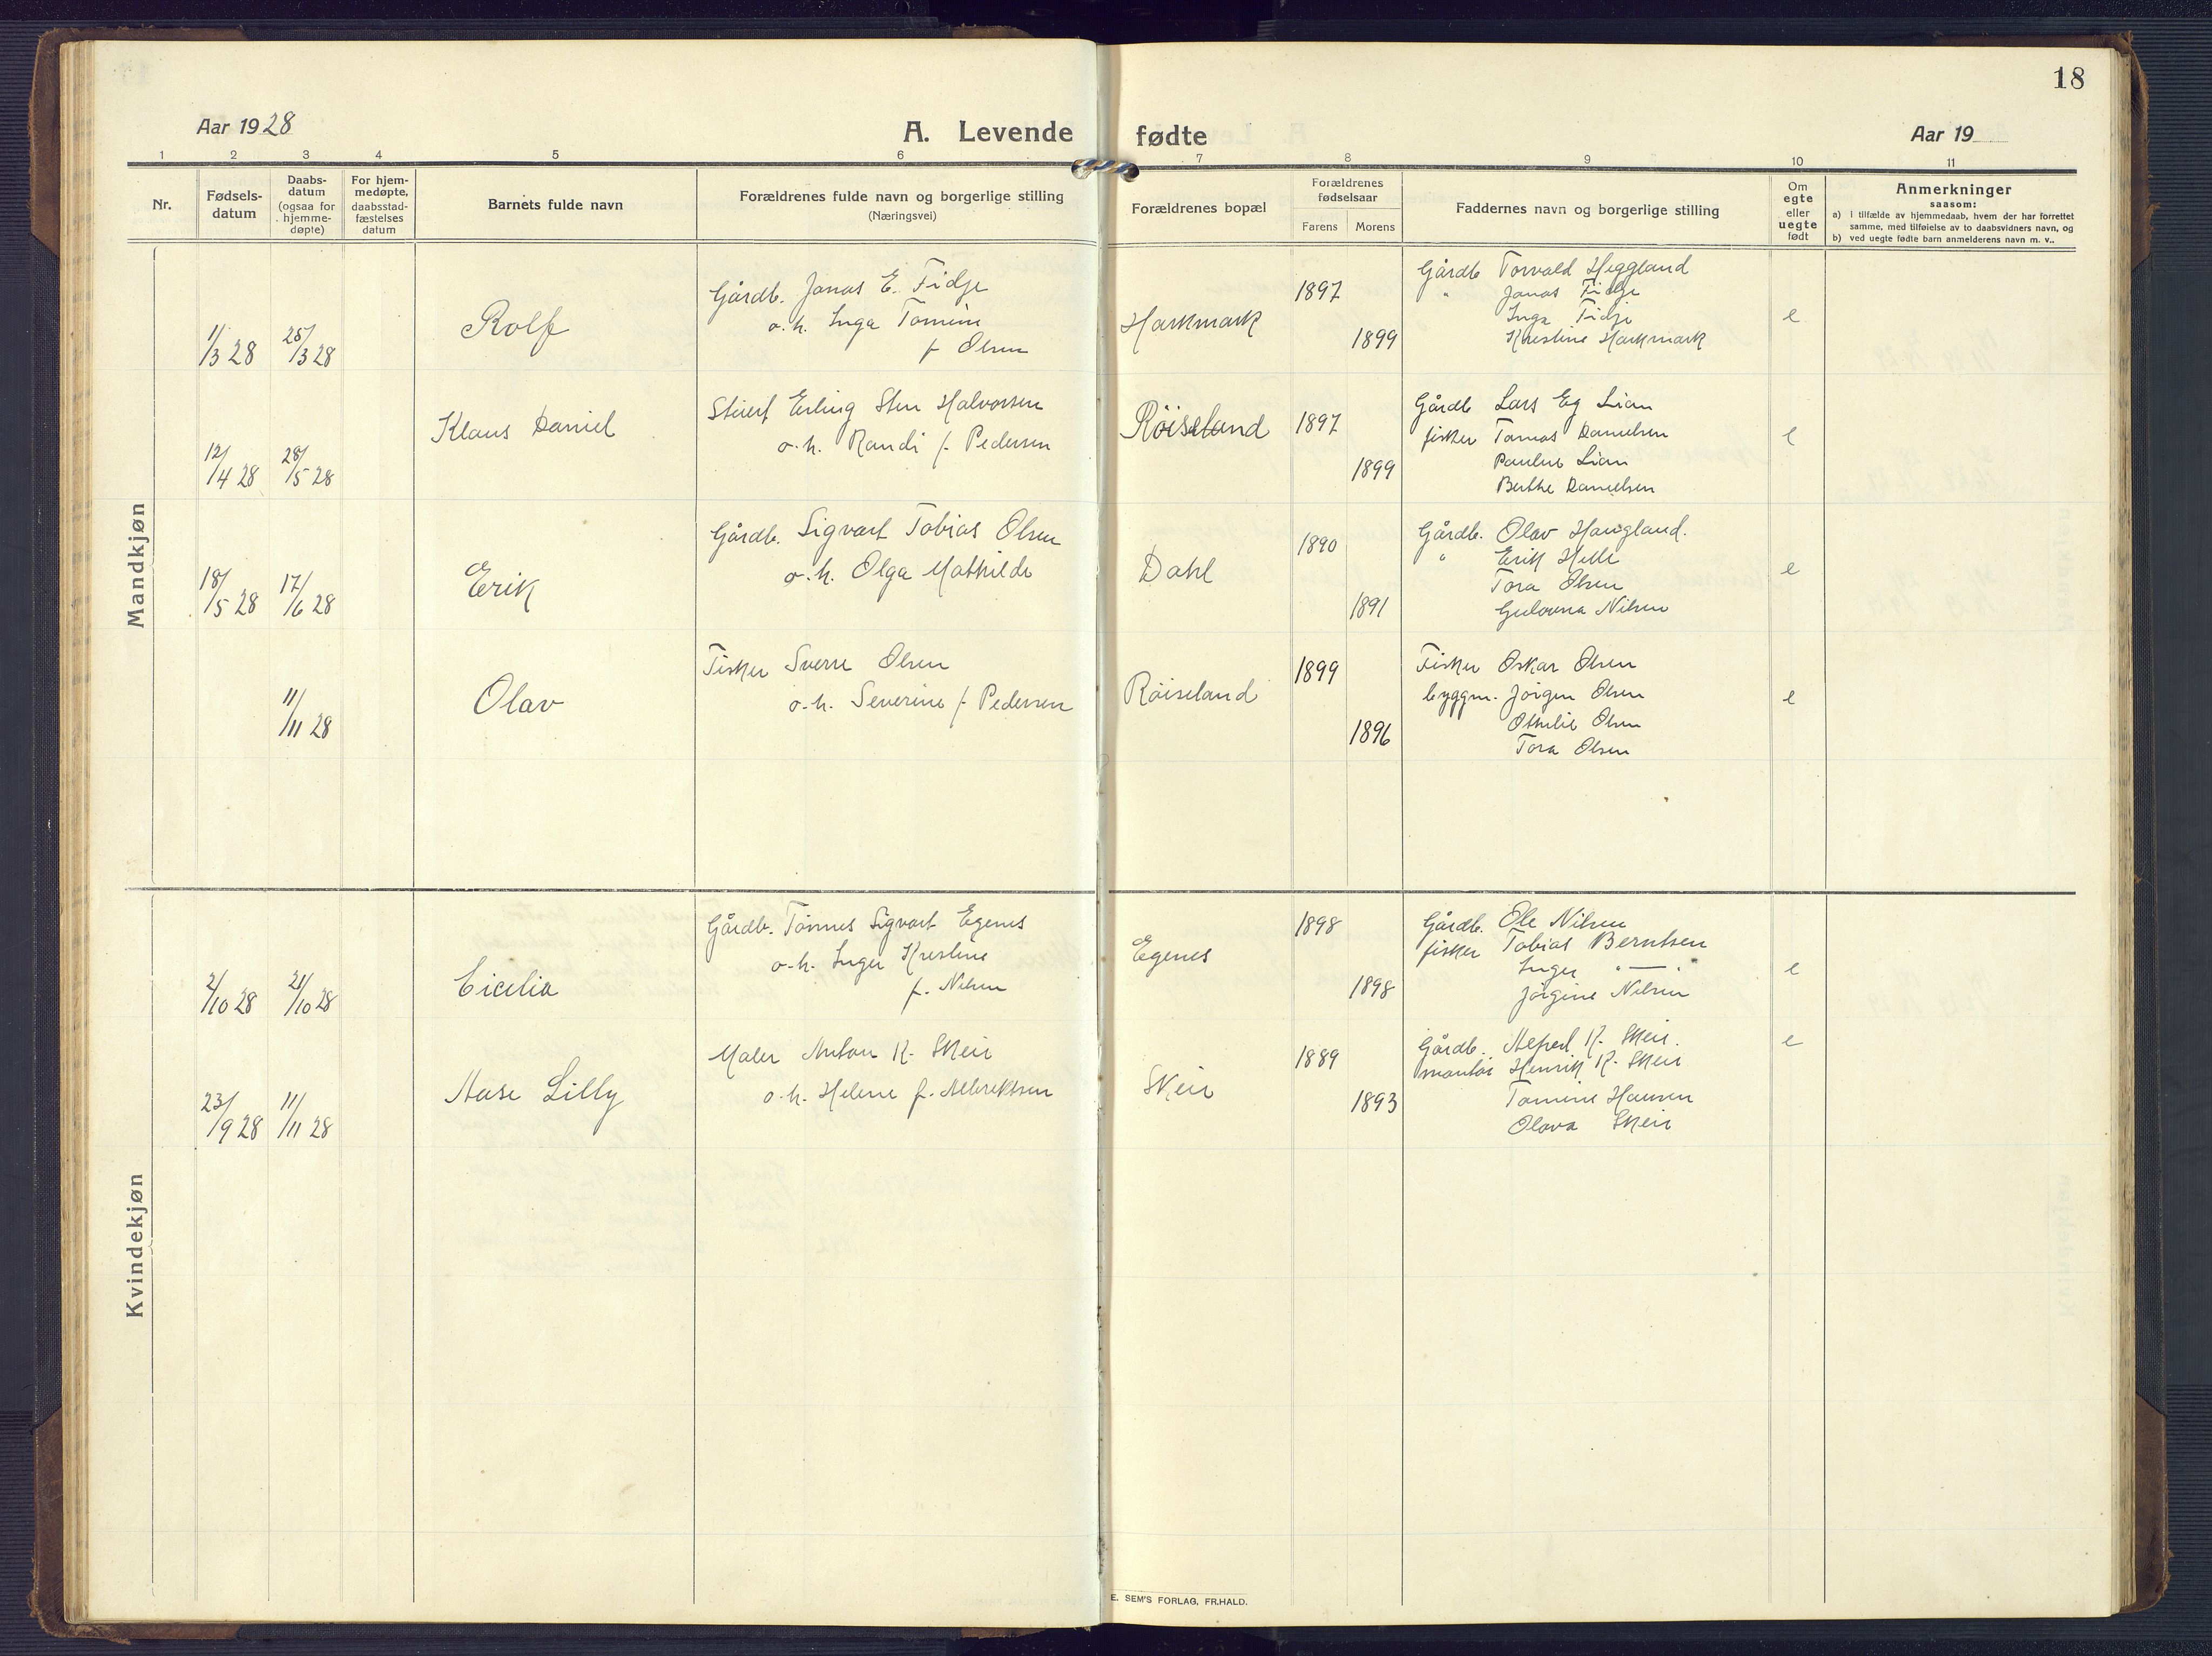 18
Aar 1928
A. Levende fødte
Aar 19
1 2 3 4 5 6 7 8 9 10 11
Nr.
Fødsels-
datum
Daabs-
datum
(ogsaa for
hjemme-
døpte)
For hjem-
medøpte,
daabsstad-
fæstelses
datum
Barnets fulde navn
Forældrenes fulde navn og borgerlige stilling
(Næringsvei)
Forældrenes bopæl
Forældrenes
fødselsaar
Farens Morens
Faddernes navn og borgerlige stilling
Om
egte
eller
uegte
født
Anmerkninger
saasom:
a) i tilfælde av hjemmedaab, hvem der har forrettet
samme, med tilføielse av to daabsvidners navn, og
b) ved uegte fødte barn anmelderens navn m. v..
Mandkjøn
1/3 28 25/3 28
Rolf
Gårdb. Jonas E. Fidje
o. h. Inga Tomine
f. Olsen
Harkmark
1897
1899
Gårdb Torvald Heggland
" Jonas Fidje
Inga Fidje
Kristine Harkmark
e
12/4 28 28/5 28
Klaus Daniel
Stuert Erling Sten Halvorsen
o. h. Randi f. Pedersen
Röiseland
1897
1899
Gårdb Lars Eg Lian
fisker Tomas Danielsen
Pauline Lian
Berthe Danielsen
e
18/5 28 17/6 28
Erik
Gårdb. Sigvart Tobias Olsen
o. h. Olga Mathilde
Dahl
1890
1891
Gårdb. Olav Haugland.
" Erik Helle
Tora Olsen
Gulovna Nilsen
e
11/11 28
Olav
Fisker Sverre Olsen
o. h. Severine f. Pedersen
Röiseland
1899
1896
Fisker Oskar Olsen
byggm. Jörgen Olsen
Othilie Olsen
Tora Olsen
e
Kvindekjøn
2/10 28 21/10 28
Cicilia
Gårdb. Tönnes Sigvart Egenes
o. h. Inger Kristine
f. Nilsen
Egenes
1898
1898
Gårdb. Ole Nilsen
fisker Tobias Berntsen
Inger " — "
Jörgine Nilsen
e
23/9 28 11/11 28
Aase Lilly
Maler Anton K. Skeie
o. h. Helene f. Albrektsen
Skeie
1889
1893
Gårdb. Alfred K. Skeie.
Henrik K. Skeie
Tomine Hansen
Olava Skeie
e
E. SEM'S FORLAG, FR.HALD.